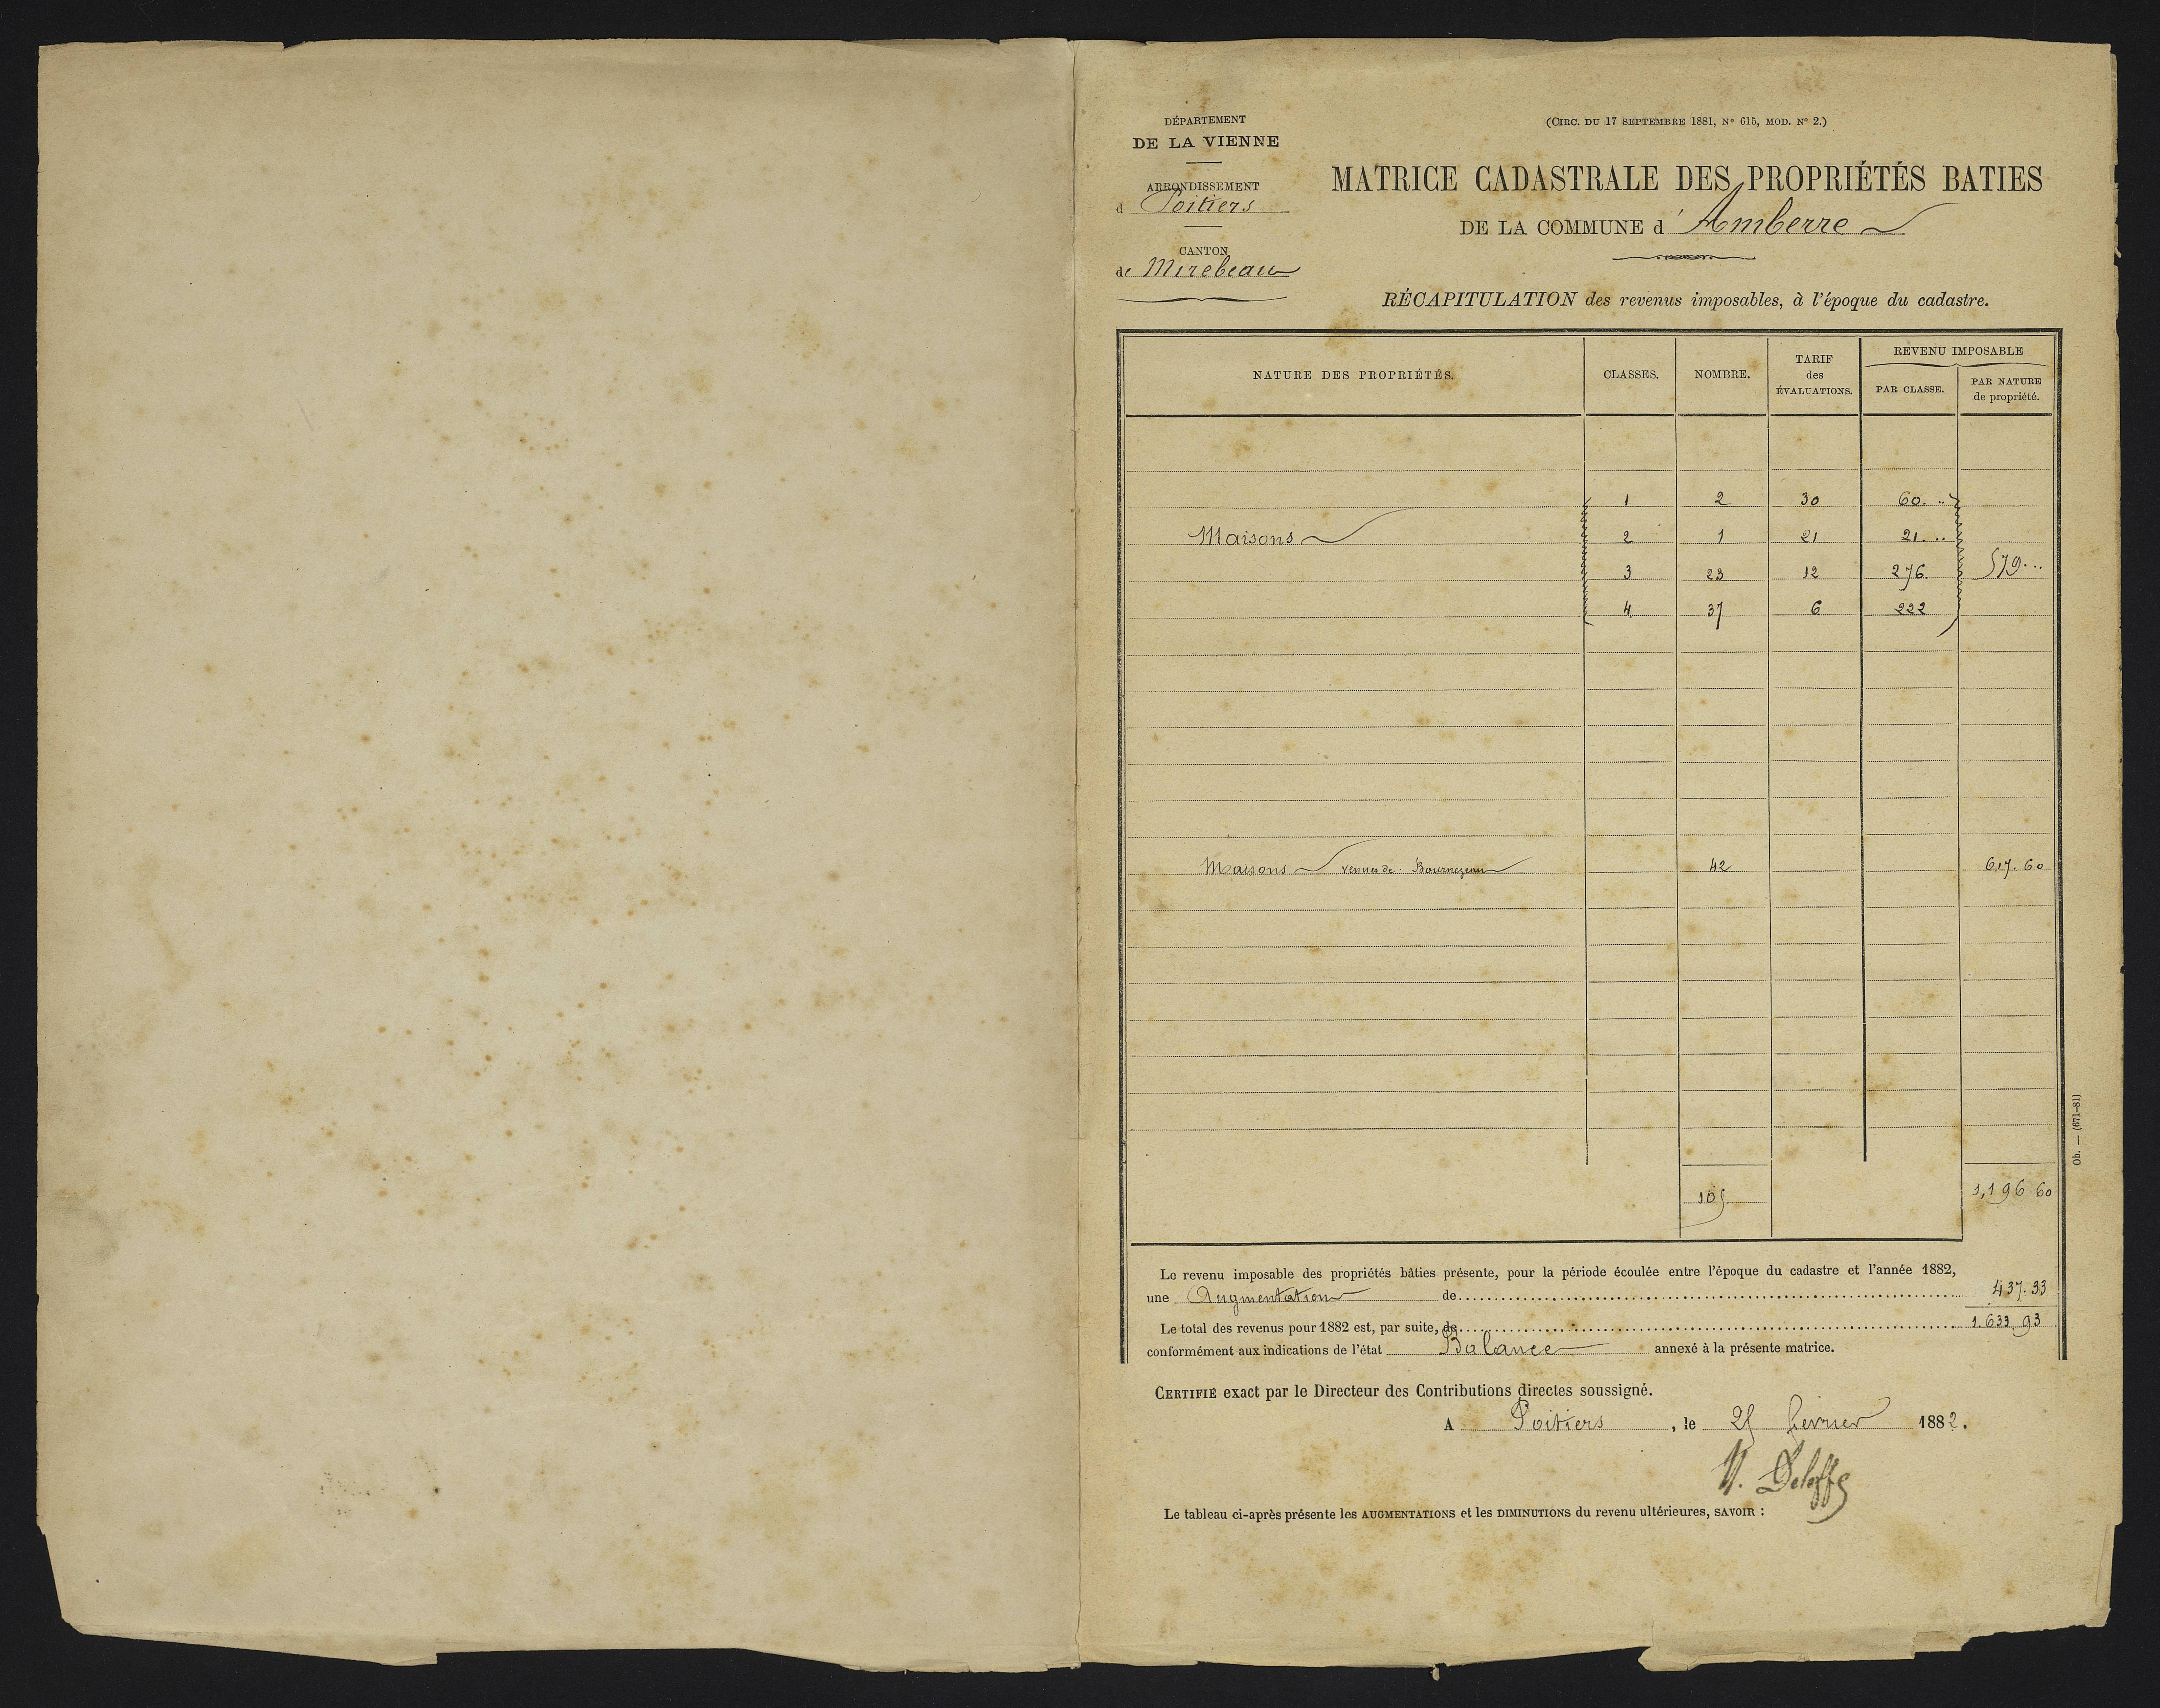 DÉPARTEMENT
DE LA VIENNE
ARRONDISSEMENT
d Poitiers
CANTON
de Mirebeau
(CIRC. DU 17 SEPTEMBRE 1881, N° 615, MOD. N° 2.)
MATRICE CADASTRALE DES PROPRIÉTÉS BATIES
DE LA COMMUNE d' Amberre
RÉCAPITULATION des revenus imposables, à l'époque du cadastre.
NATURE DES PROPRIÉTÉS. CLASSES. NOMBRE. TARIF des ÉVALUATIONS. REVENU IMPOSABLE
PAR CLASSE. PAR NATURE de propriété.
1 2 30 60. ..
Maisons 2 1 21 21. ..
3 23 12 276. 579...
4 37 6 222
Maisons venues de Bournezeau 42 617. 60
105 1,196 60
Le revenu imposable des propriétés bâties présente, pour la période écoulée entre l'époque du cadastre et l'année 1882,
une Augmentation de 437. 33
Le total des revenus pour 1882 est, par suite, de 1.633 93
conformément aux indications de l'état Balance annexé à la présente matrice.
CERTIFIÉ exact par le Directeur des Contributions directes soussigné.
A Poitiers, le 25 fevrier 1882.
Le tableau ci-après présente les AUGMENTATIONS et les DIMINUTIONS du revenu ultérieures, SAVOIR :
Ob. — (671-81)